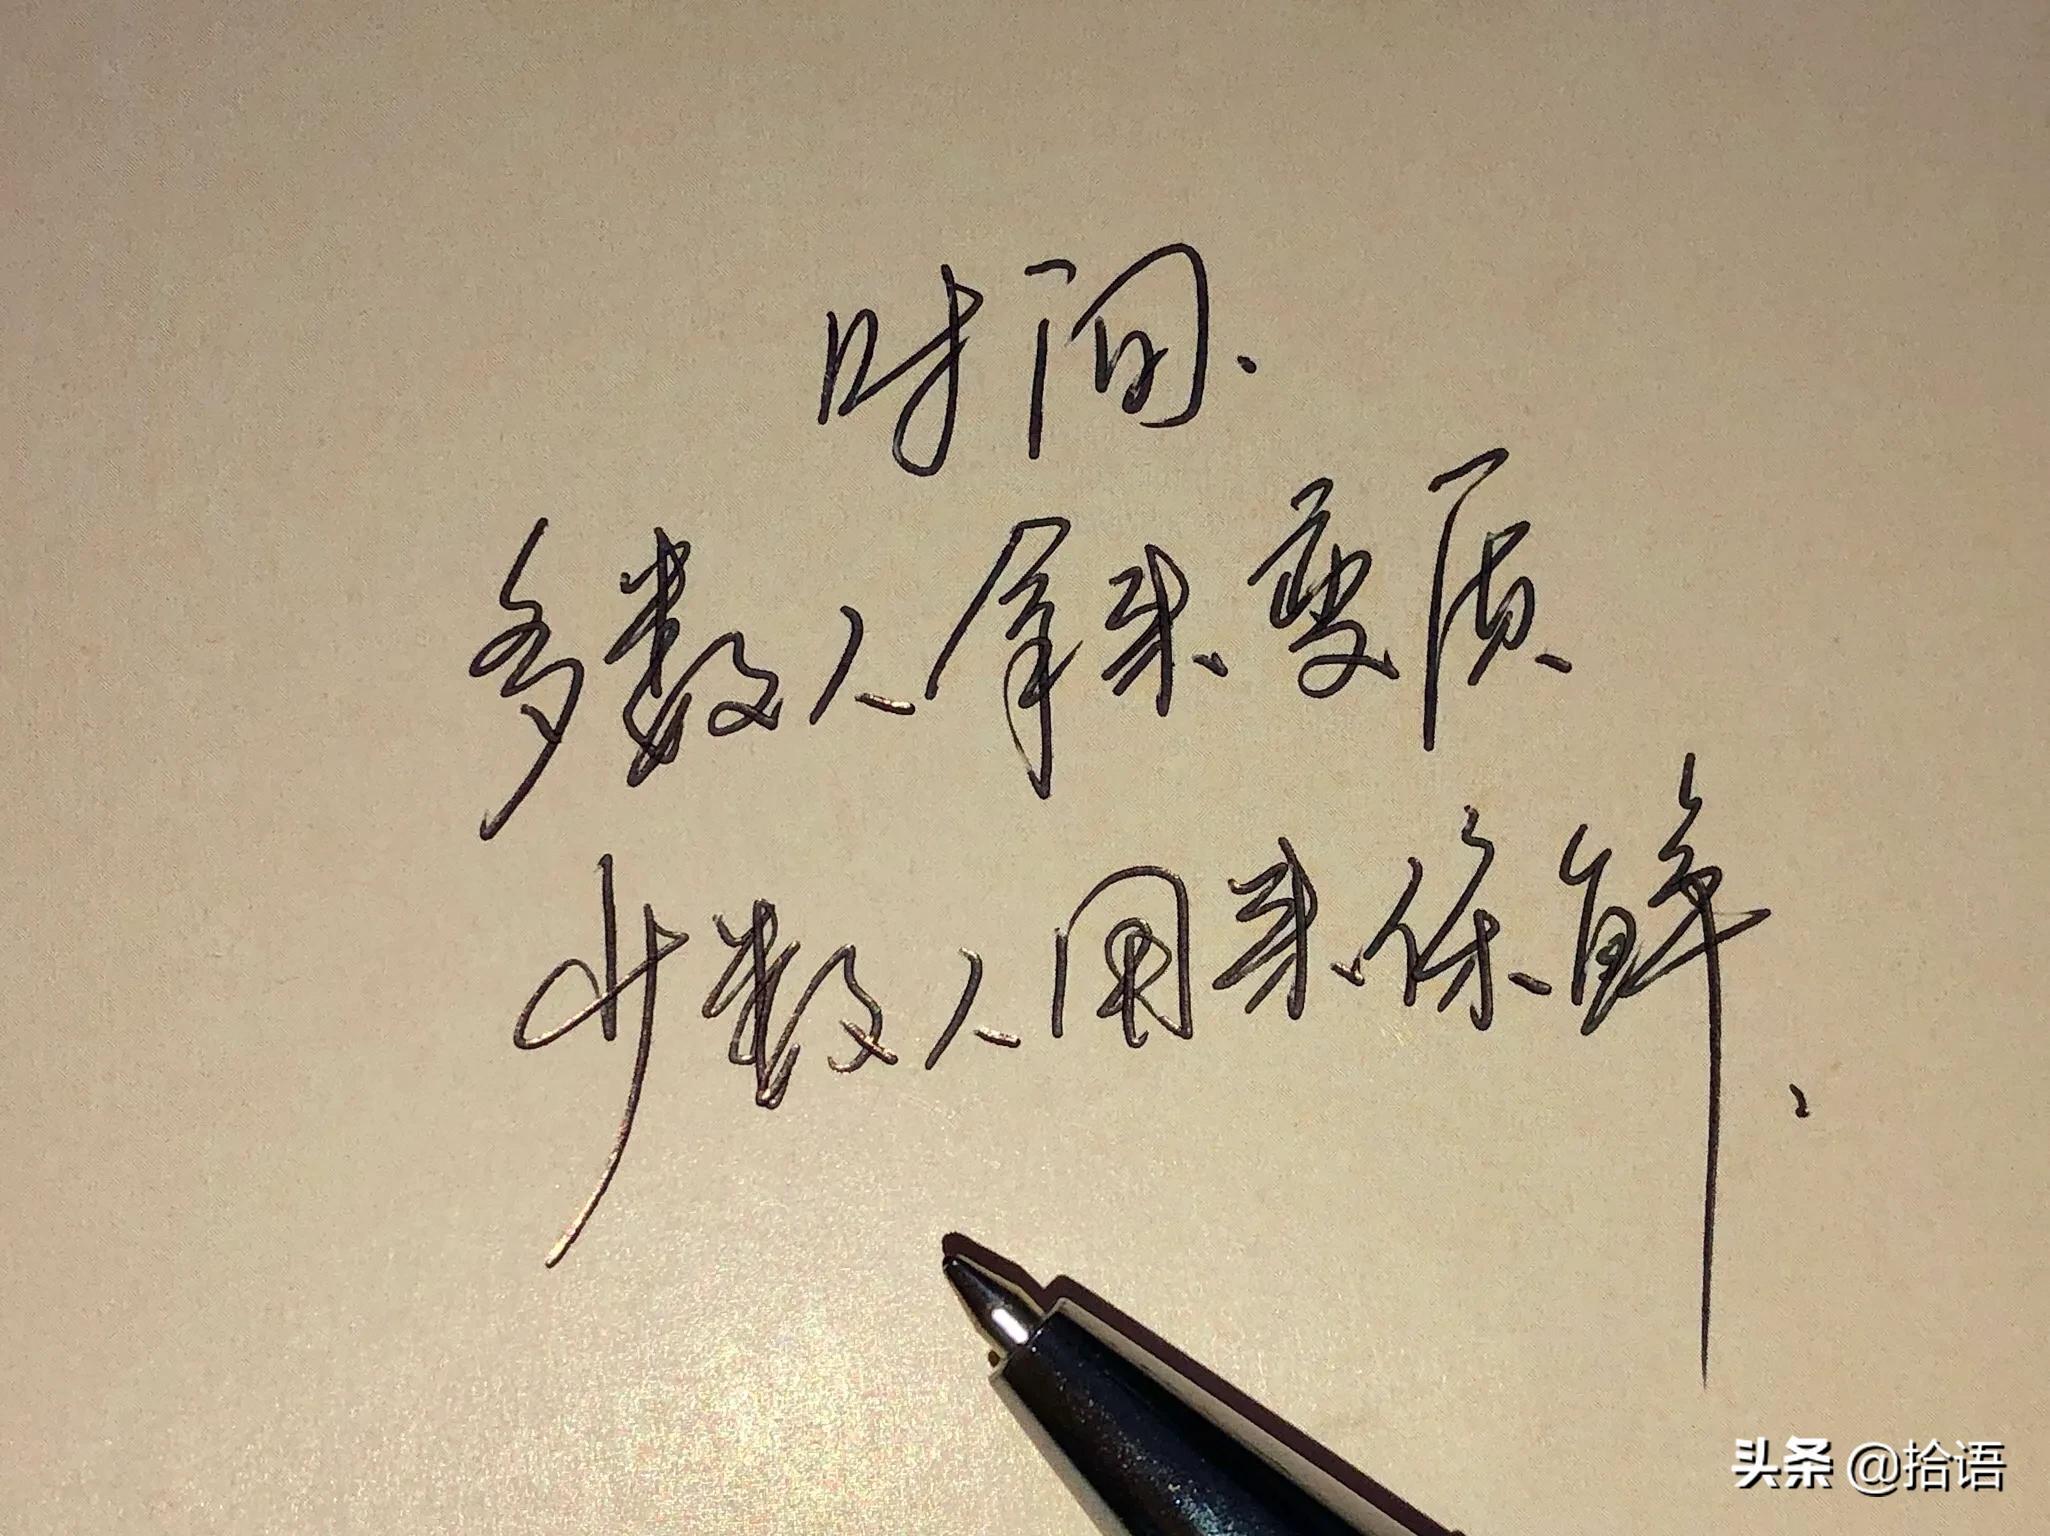 时间.
多数人拿来变质
少数人用来保鲜.
头条 @拾语